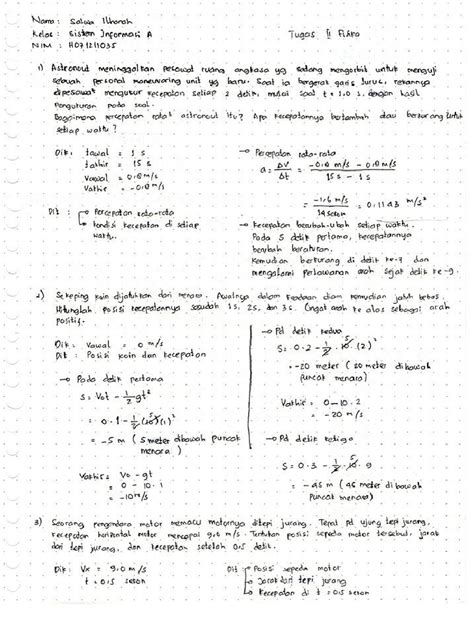 Nama : Salwa Ilharah
Kelas : Sistem Informasi A
Tugas II Fisika
NIM : H071211035
1) Astronout meninggalkan pesawat ruang angkasa yg sedang mengorbit untuk menguji
sebuah personal maneuvering unit yg baru. Saat ia bergerak garis lurus, rekannya
dipesawat mengukur kecepatan setiap 2 detik, mulai saat t = 1.0 s. dengan hasil
Pengukuran pada soal.
Bagaimana percepatan rata² astronout itu? Apa kecepatannya bertambah dau berkurang untuk
setiap waktu?
Dik : tawal = 1 s
takhir = 15 s
Vawal = 0,8 m/s
Vakhir = -0,8 m/s
Dit : → Percepatan rata-rata
→ kondisi kecepatan di setiap
waktu.
→ Percepatan rata-rata
a = ΔV/Δt = -0,8 m/s - 0,8 m/s / 15 s - 1 s
= -1,6 m/s / 14 sekon = 0,1143 m/s²
→ Kecepatan berubah-ubah setiap waktu.
Pada 5 detik pertama, kecepatannya
berubah beraturan.
Kemudian berkurang di detik ke-7 dan
mengalami perlawanan arah sejak detik ke-9.
2) Sekeping koin dijatuhkan dari menara. Awalnya dalam keadaan diam kemudian jatuh bebas.
Hitunglah, posisi kecepatannya sesudah 1s, 2s, dan 3s. (ingat arah ke atas sebagai arah
positif.
Dik : Vawal = 0 m/s
Dit : Posisi koin dan kecepatan
→ Pada detik pertama
S = Vot - 1/2 gt²
= 0.1 - 1/2 (10)(1)²
= -5 m (5 meter dibawah puncak
menara)
Vakhir = Vo - gt
= 0 - 10.1
= -10 m/s
→ Pd detik kedua
S = 0.2 - 1/2 . 10 . (2)²
= -20 meter (20 meter dibawah
puncak menara)
Vakhir = 0 - 10.2
= -20 m/s
→ Pd detik ketiga
S = 0.3 - 1/2 . 10 . 9
= -45 m (45 meter dibawah
puncak menara)
3) Seorang pengendara motor memacu motornya ditepi jurang. Tepat pd ujung tepi jurang,
kecepatan horizontal motor mencapai 9,0 m/s. Tentukan posisi sepeda motor tersebut, jarak
dari tepi jurang, dan kecepatan setelah 0,5 detik.
Dik : Vx = 9,0 m/s
t = 0,5 sekon
Dit : → Posisi sepeda motor
→ Jarak dari tepi jurang
→ Kecepatan di t = 0,5 sekon